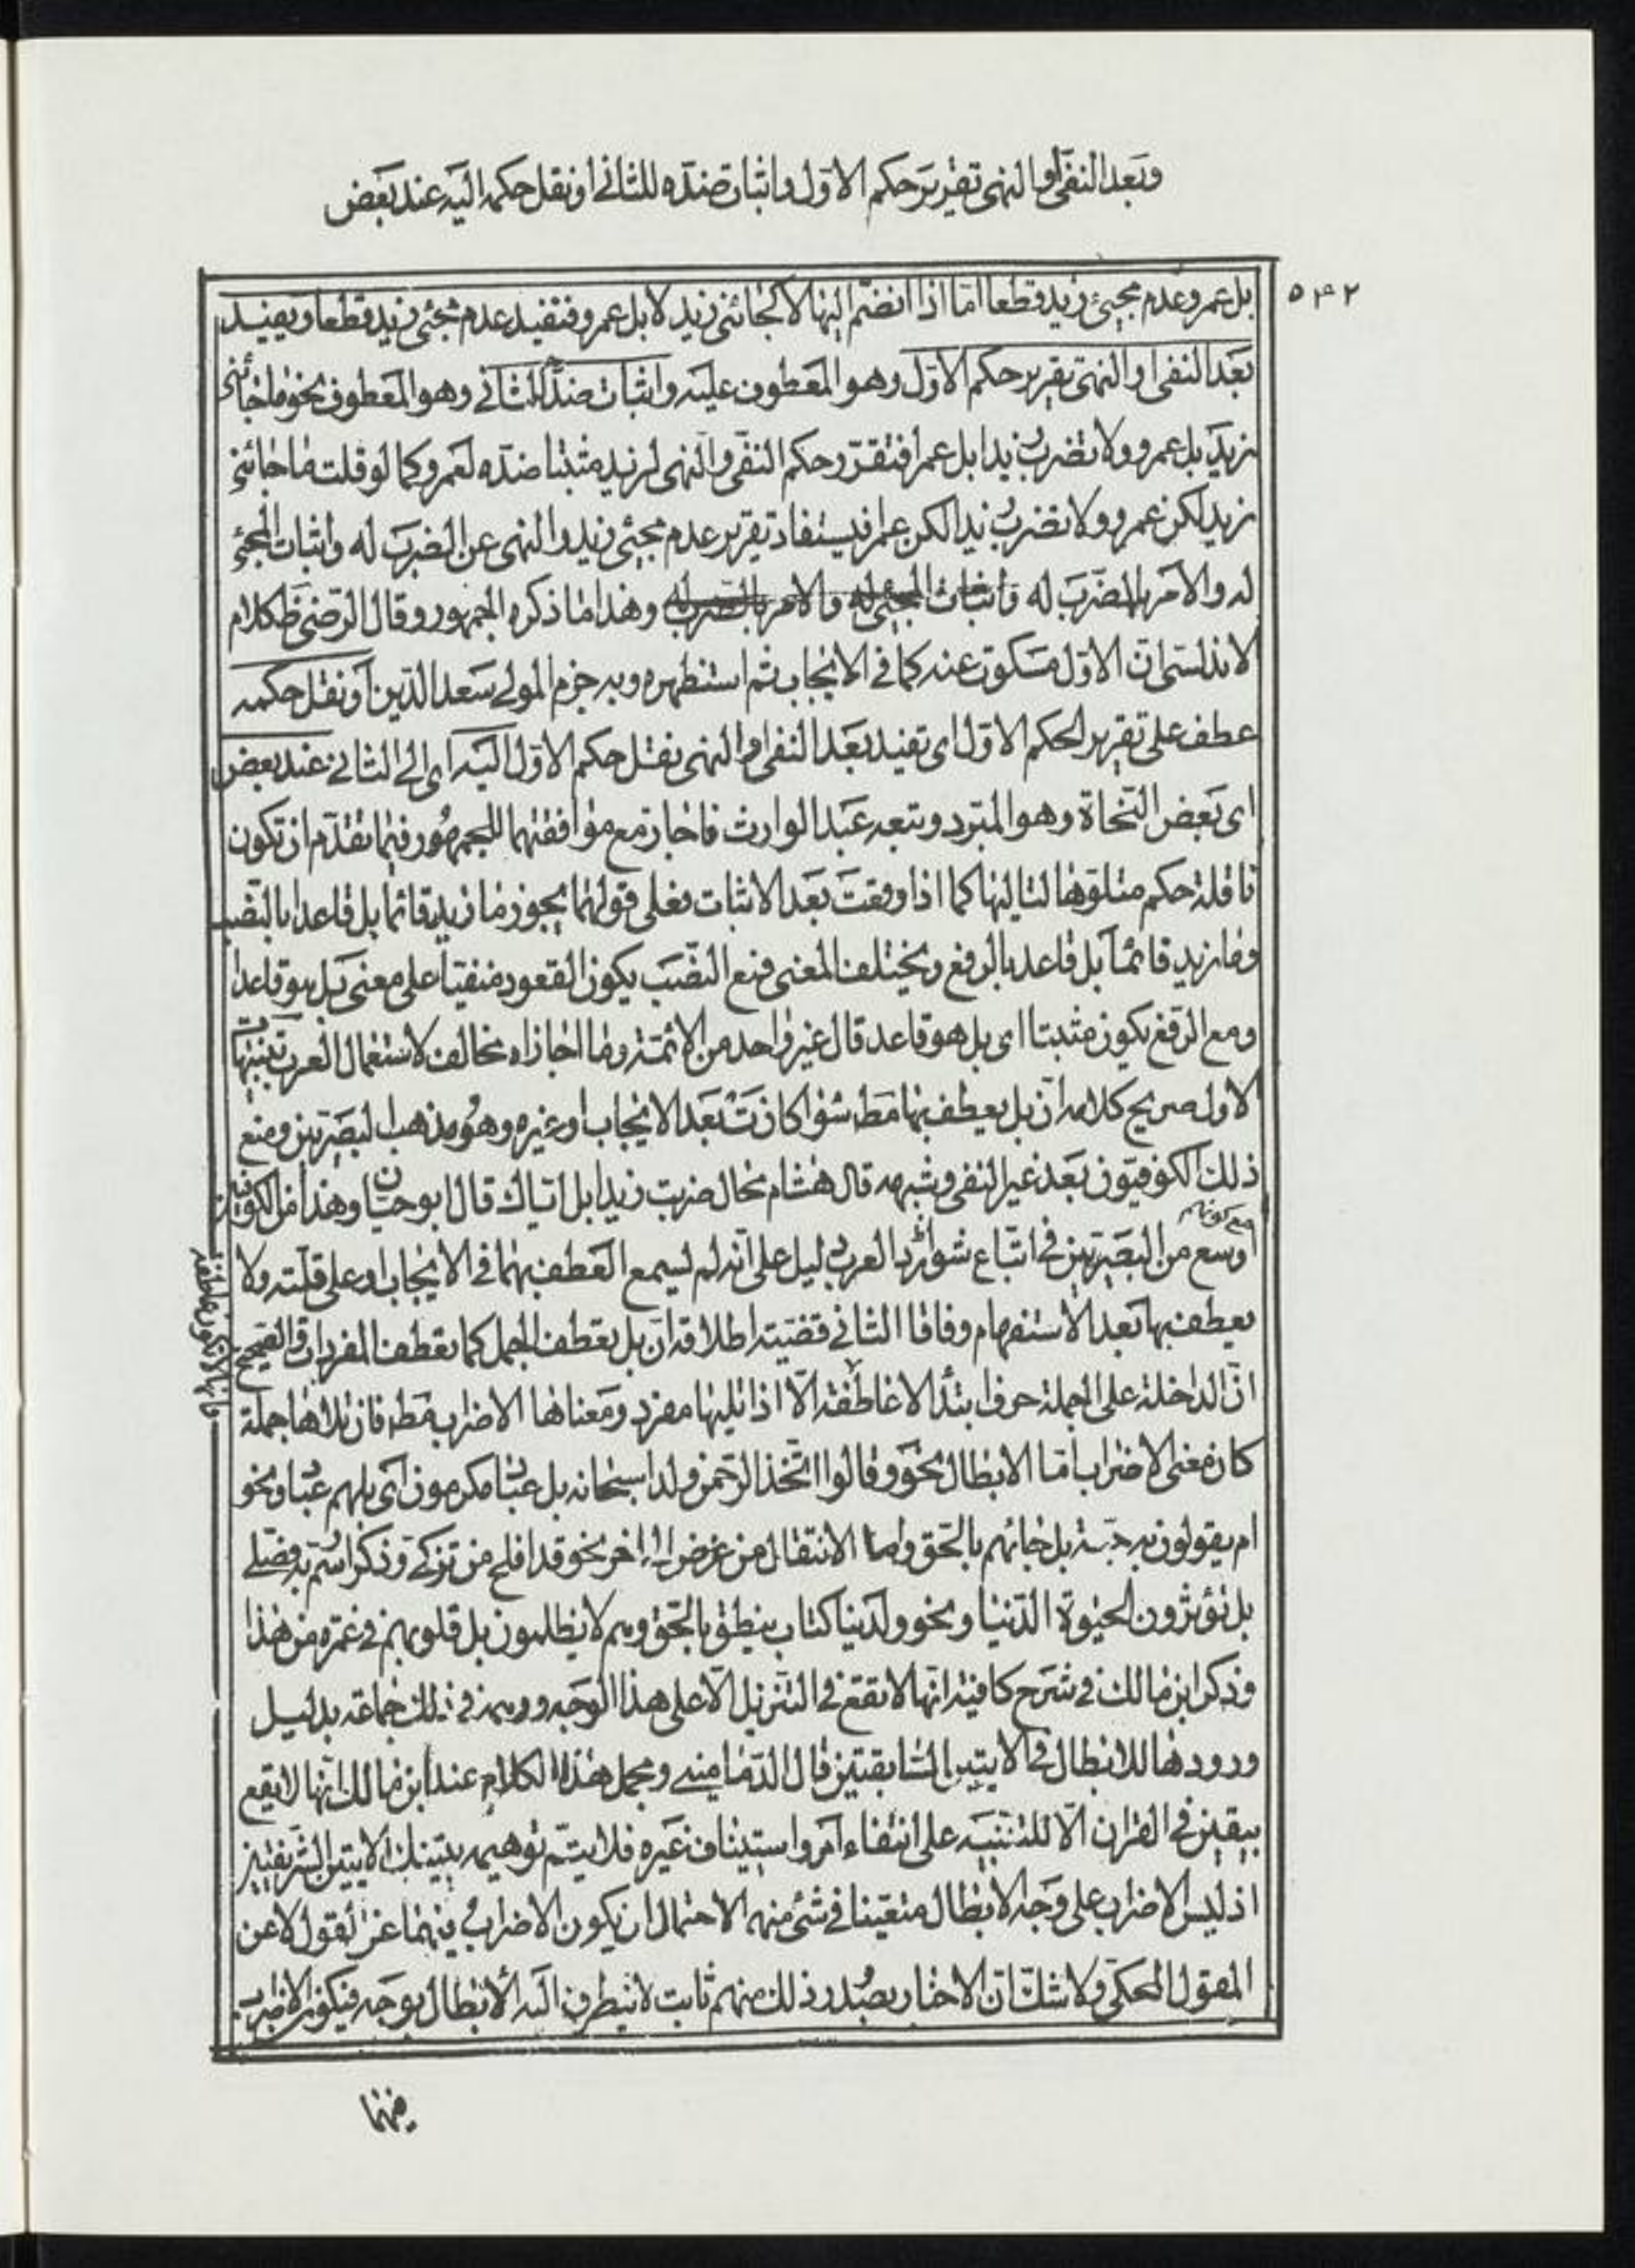 وبعد النفى او النهى تقرير حكم الاول واثبات ضده للثانى او نقل حكمه اليه عند بعض
٥٤٢
بل عمرو عدم مجيئ زيد قطعا اما اذا انضم اليها لا كجائنى زيد لا بل عمرو فتفيد عدم مجيئ زيد قطعا ويفيد
بعد النفى او النهى تقرير حكم الاول وهو المعطوف عليه واثبات ضده للثانى وهو المعطوف نحو ما جائنى
زيد بل عمرو ولا تضرب زيدا بل عمرا فتقرر حكم النفى والنهى لزيد مثبتا ضده لعمرو كما لو قلت ما جائنى
زيد لكن عمرو ولا تضرب زيدا لكن عمرا فيستفاد تقرير عدم مجيئ زيد والنهى عن الضرب له واثبات المجيئ
له والامر بالضرب له واثبات المجيئ له والامر بالضرب له وهذا ما ذكره الجمهور وقال الرضى ظ كلام
الاندلسى ان الاول مسكوت عنه كما فى الايجاب ثم استظهره وبه جزم المولى سعد الدين او نقل حكمه
عطف على تقرير لحكم الاول اى تفيد بعد النفى او النهى نقل حكم الاول اليه اى الى الثانى عند بعض
اى بعض النحاة وهو المبرد وتبعه عبد الوارث فاجازا مع موافقتهما للجمهور فيما تقدم ان تكون
ناقلة حكم متلوها لتاليها كما اذا وقعت بعد الاثبات فعلى قولهما يجوز ما زيد قائما بل قاعدا بالنصب
وما زيد قائما بل قاعد بالرفع ويختلف المعنى فمع النصب يكون القعود منفيا على معنى بل هو قاعدا
ومع الرفع يكون مثبتا اى بل هو قاعد قال غير واحد من الائمة وما اجازاه مخالف لاستعمال العرب تنبيهات
الاول صريح كلامه ان بل يعطف بها مط سواء كانت بعد الايجاب او غيره وهو مذهب البصريين ومنع
ذلك الكوفيون بعد غير النفى وشبهه قال هشام محال ضربت زيدا بل اياك قال ابو حيان وهذا من الكوفيين
مع كونهم
اوسع من البصريين فى اتباع شوارد العرب دليل على انه لم يسمع العطف بها فى الايجاب او على قلته ولا
يعطف بها بعد الاستفهام وفاقا الثانى قضية اطلاقه ان بل تعطف الجمل كما تعطف المفردات والصحيح
ان الداخلة على الجملة حرف ابتداء لا عاطفة الا اذا تليها مفرد ومعناها الاضراب مط فان تلاها جملة
كان معنى الاضراب اما الابطال نحو وقالوا اتخذ الرحمن ولدا سبحانه بل عباد مكرمون اى بل هم عباد ونحو
ام يقولون به جنة بل جائهم بالحق واما الانتقال من غرض الى اخر نحو قد افلح من تزكى وذكر اسم ربه فصلى
بل تؤثرون الحيوة الدنيا ونحو ولدينا كتاب ينطق بالحق وهم لا يظلمون بل قلوبهم فى غمرة من هذا
وذكر ابن مالك فى شرح كافيته انها لا تقع فى التنزيل الا على هذا الوجه ووهمه فى ذلك جماعة بدليل
ورودها للابطال فى الايتين السابقتين قال الدمامينى ومحمل هذا الكلام عند ابن مالك انها لا يقع
بيقين فى القران الا للتنبيه على انتفاء امر واستيناف غيره فلا يتم توهيمه بتينك الايتين الشريفتين
اذ ليس الاضراب على وجه الابطال متعينا فى شئ منهما لاحتمال ان يكون الاضراب فيهما عن القول لا عن
المقول المحكى ولا شك ان الاخبار بصدور ذلك منهم ثابت لا يتطرق اليه الابطال بوجه فيكون الاضراب
فيهما